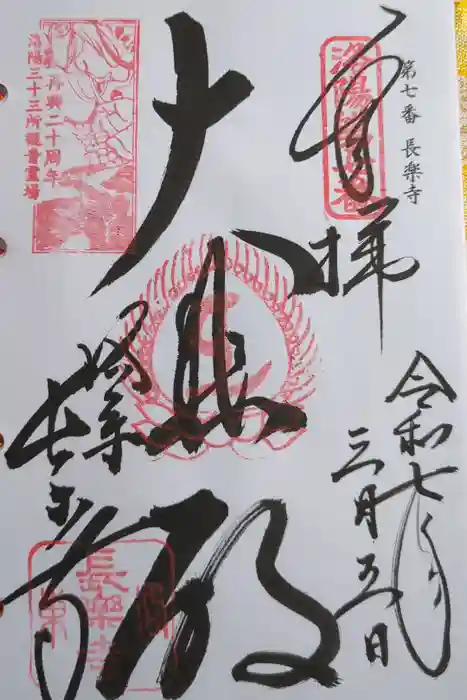 第七番 長楽寺
洛陽第七番
奉拝
令和七年
三月五日
大悲殿
再興二十周年
洛陽三十三所観音霊場
長楽寺
長樂寺